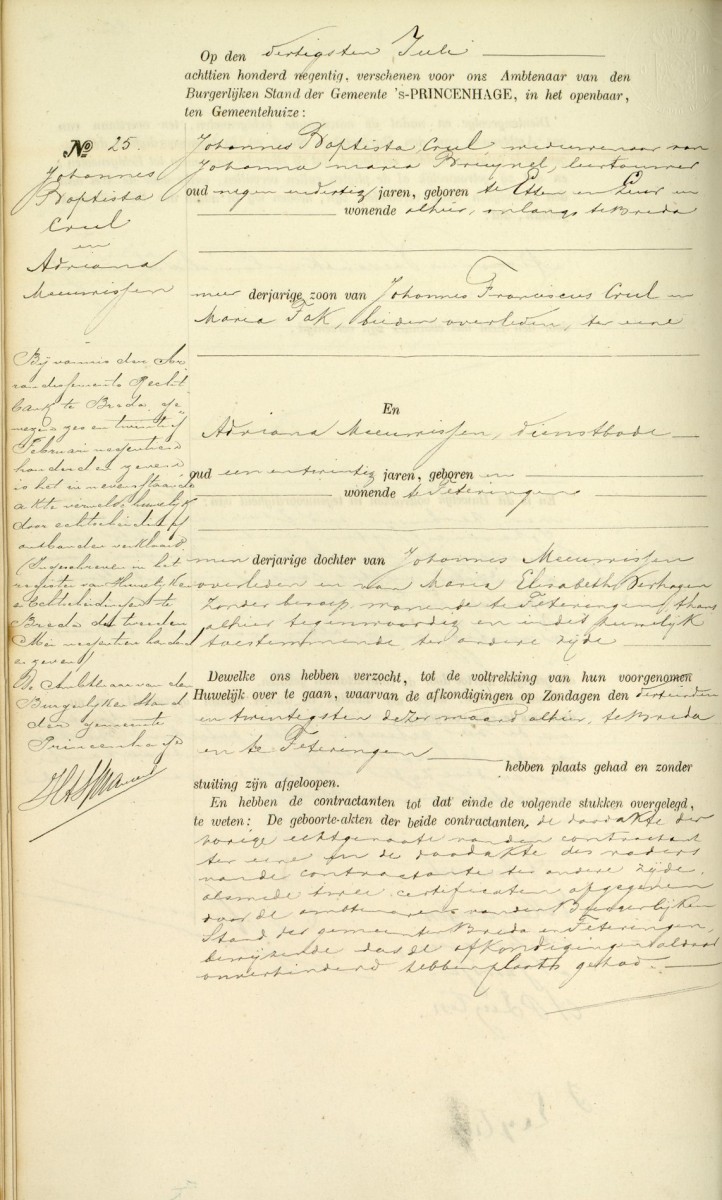 Op den dertigsten Juli
achttien honderd negentig, verschenen voor ons Ambtenaar van den
Burgerlijken Stand der Gemeente 's-PRINCENHAGE, in het openbaar,
ten Gemeentehuize:
No 25.
Johannes
Baptista
Crul
en
Adriana
Meeuwissen
Johannes Baptista Crul, weduwenaar van
Johanna Maria Bruynel, leertouwer
oud negen en dertig jaren, geboren te Etten en Leur en
wonende alhier, onlangs te Breda
meer derjarige zoon van Johannes Franciscus Crul en
Maria Tak, beiden overleden, ter eene
En
Adriana Meeuwissen, dienstbode
oud een en twintig jaren, geboren en
wonende te Teteringen
min derjarige dochter van Johannes Meeuwissen
overleden en van Maria Elisabeth Verhagen
zonder beroep, wonende te Teteringen, thans
alhier tegenwoordig en in dit huwelijk
toestemmende, ter andere zijde
Dewelke ons hebben verzocht, tot de voltrekking van hun voorgenomen
Huwelijk over te gaan, waarvan de afkondigingen op Zondagen den dertienden
en twintigsten dezer maand alhier, te Breda
en te Teteringen hebben plaats gehad en zonder
stuiting zijn afgeloopen.
En hebben de contractanten tot dat einde de volgende stukken overgelegd,
te weten: De geboorte-akten der beide contractanten, de doodakte der
vorige echtgenoote van den contractant
ter eene en de doodakte des vaders
van de contractante ter andere zijde,
alsmede twee certificaten afgegeven
door de ambtenaren van den Burgerlijken
Stand der gemeenten Breda en Teteringen,
bewijzende dat de afkondigingen aldaar
onverhinderd hebben plaats gehad.
Bij vonnis der Ar
rondissements Recht
bank te Breda, ge
wezen zes en twintig
Februari negentien
honderd en zeven
is het in nevenstaande
akte vermelde huwelijk
door echtscheiding
ontbonden verklaard
(Ingeschreven in het
register van Huwelijken
en Echtscheidingen te
Breda den tweeden
Mei negentien honderd
en zeven)
De Ambtenaar van den
Burgerlijken Stand
der gemeente
Princenhage